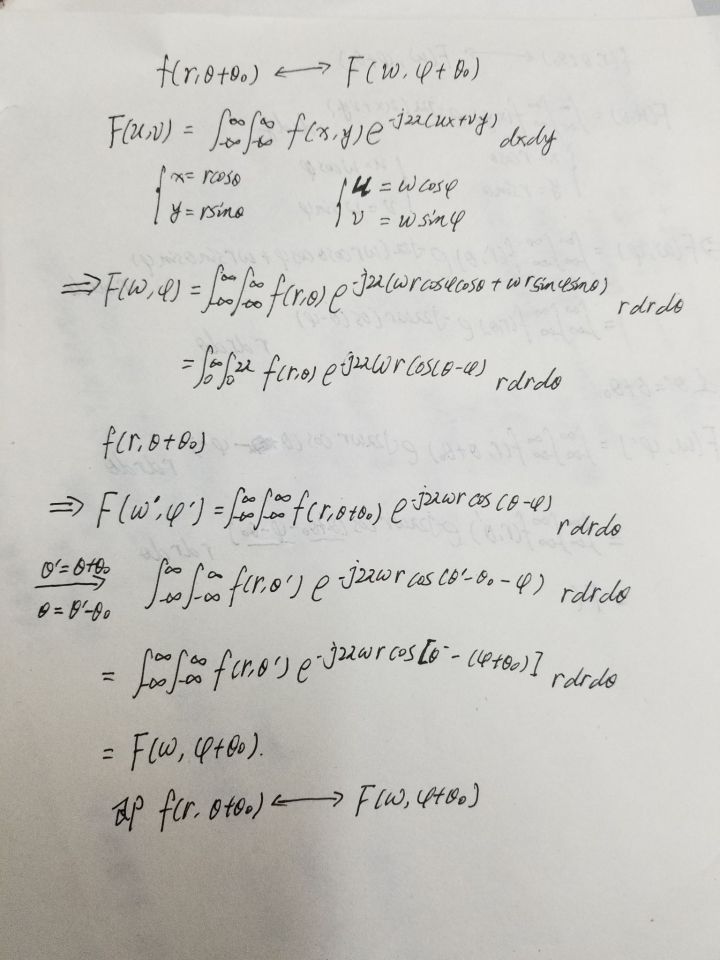 f(r,θ+θ₀) ⟷ F(w,φ+θ₀)
F(u,v) = ∫_{-∞}^{∞}∫_{-∞}^{∞} f(x,y)e^{-j2π(ux+vy)} dxdy
{x=rcosθ {u=wcosφ
y=rsinθ v=wsinφ
⟹F(w,φ)=∫_{-∞}^{∞}∫_{-∞}^{∞} f(r,θ)e^{-j2π(wrcosφcosθ+wrsinφsinθ)} rdrdθ
=∫_{0}^{∞}∫_{0}^{2π} f(r,θ)e^{-j2πwrcos(θ-φ)} rdrdθ
f(r,θ+θ₀)
⟹ F(w',φ')=∫_{-∞}^{∞}∫_{-∞}^{∞} f(r,θ+θ₀) e^{-j2πwrcos(θ-φ)} rdrdθ
θ'=θ+θ₀
θ=θ'-θ₀ ⟶ ∫_{-∞}^{∞}∫_{-∞}^{∞} f(r,θ') e^{-j2πwrcos(θ'-θ₀-φ)} rdrdθ
= ∫_{-∞}^{∞}∫_{-∞}^{∞} f(r,θ')e^{-j2πwrcos[θ-(φ+θ₀)]} rdrdθ
= F(w,φ+θ₀).
即 f(r,θ+θ₀) ⟷ F(w,φ+θ₀)